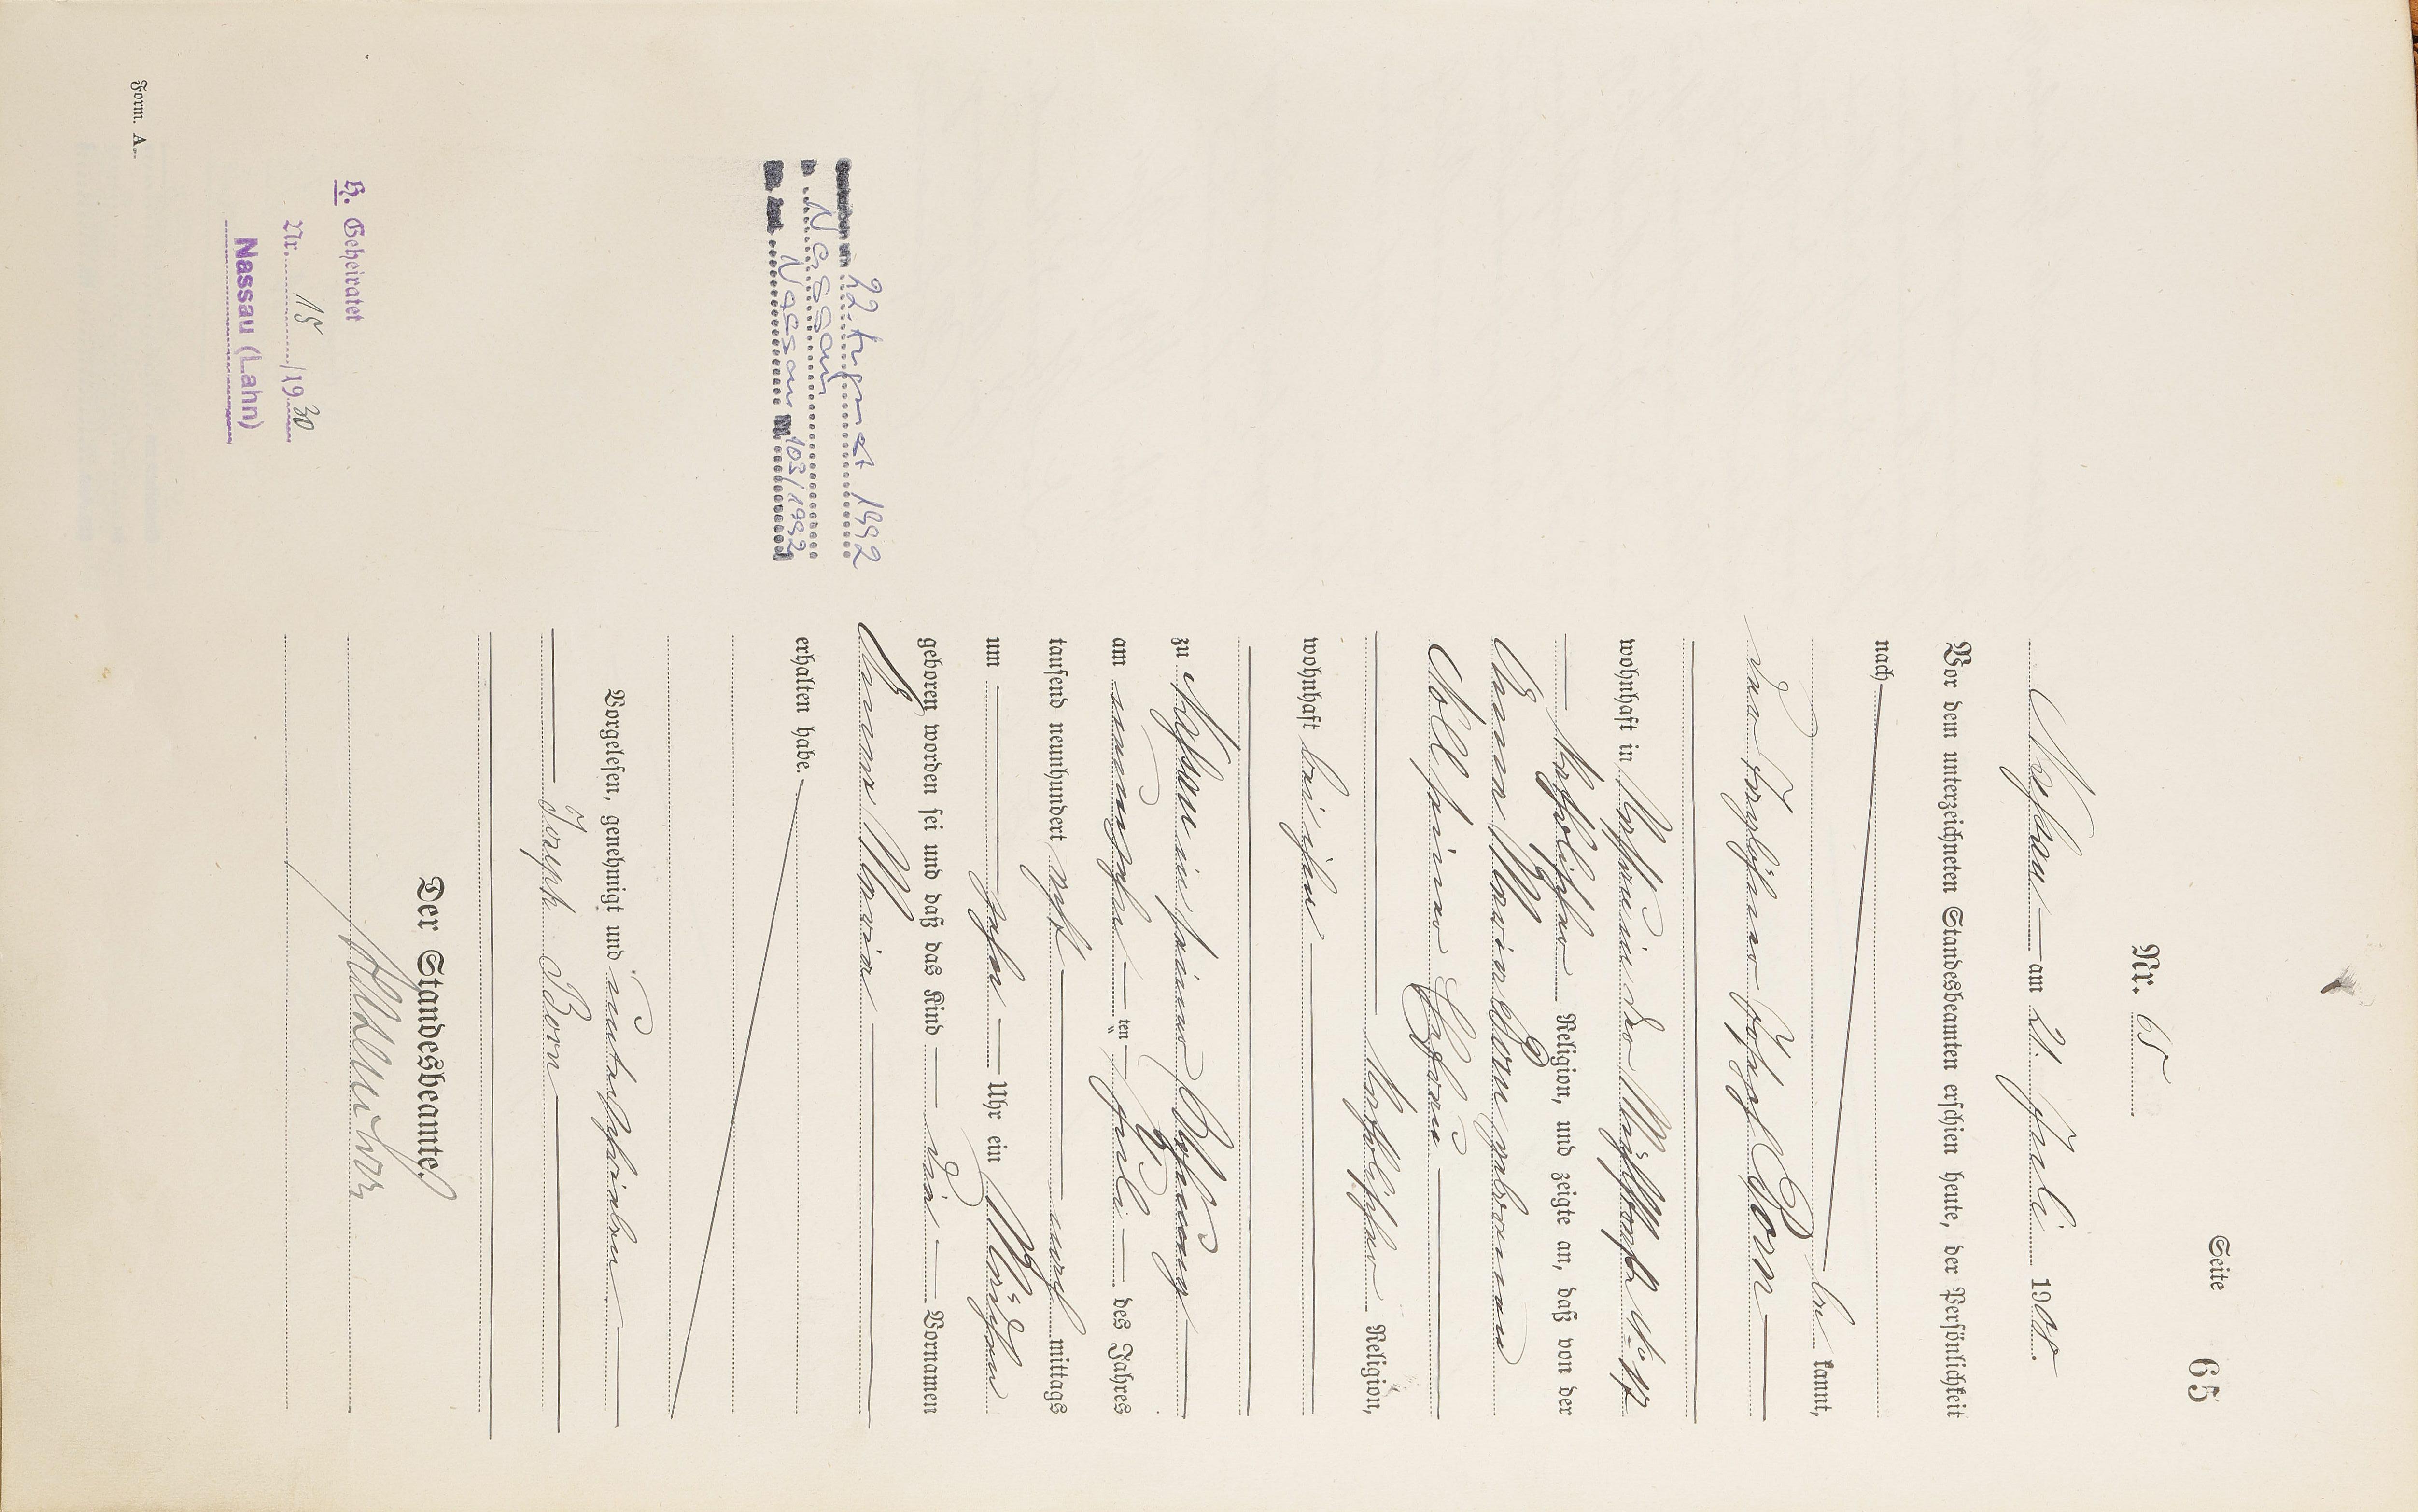 Seite 65
Nr. 65
Nassau am 21. Juli 1908.
Vor dem unterzeichneten Standesbeamten erschien heute, der Persönlichkeit
nach
be kannt,
der Joseph Born
wohnhaft in Nassau in der No 17
katholischer Religion, und zeigte an, daß von der
Anna Maria Born geborene
Noll seiner Ehefrau
katholischer Religion,
wohnhaft bei ihm
zu Nassau in seiner Wohnung
am ten Juli des Jahres
tausend neunhundert acht mittags
um zehn Uhr ein Mädchen
geboren worden sei und daß das Kind die Vornamen
Anna Maria
erhalten habe.
Vorgelesen, genehmigt und unterschrieben
Joseph Born
Der Standesbeamte.
Gestorben am 22. August 1992
in Nassau
Nassau Nr. 103/1992
H. Geheiratet
Nr. 15/1930
Nassau (Lahn)
Form. A.